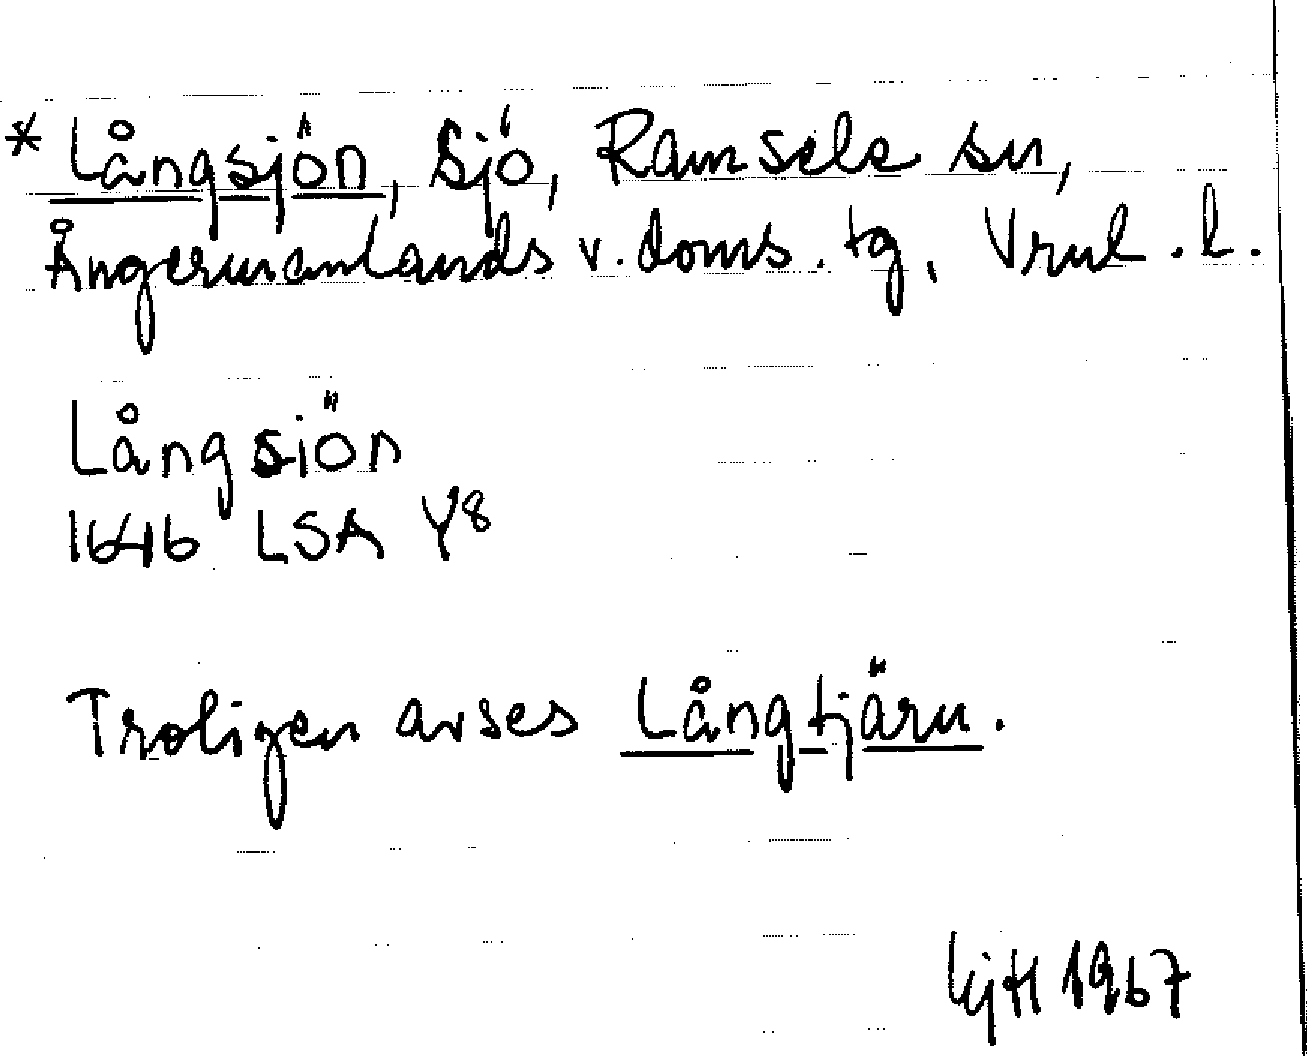 * Långsjön, sjö, Ramsele sn,
Ångermanlands v. doms. tg, Vrnl. l.
Långsiön
1646 LSA Y8
Troligen avses Långtjärn.
1967